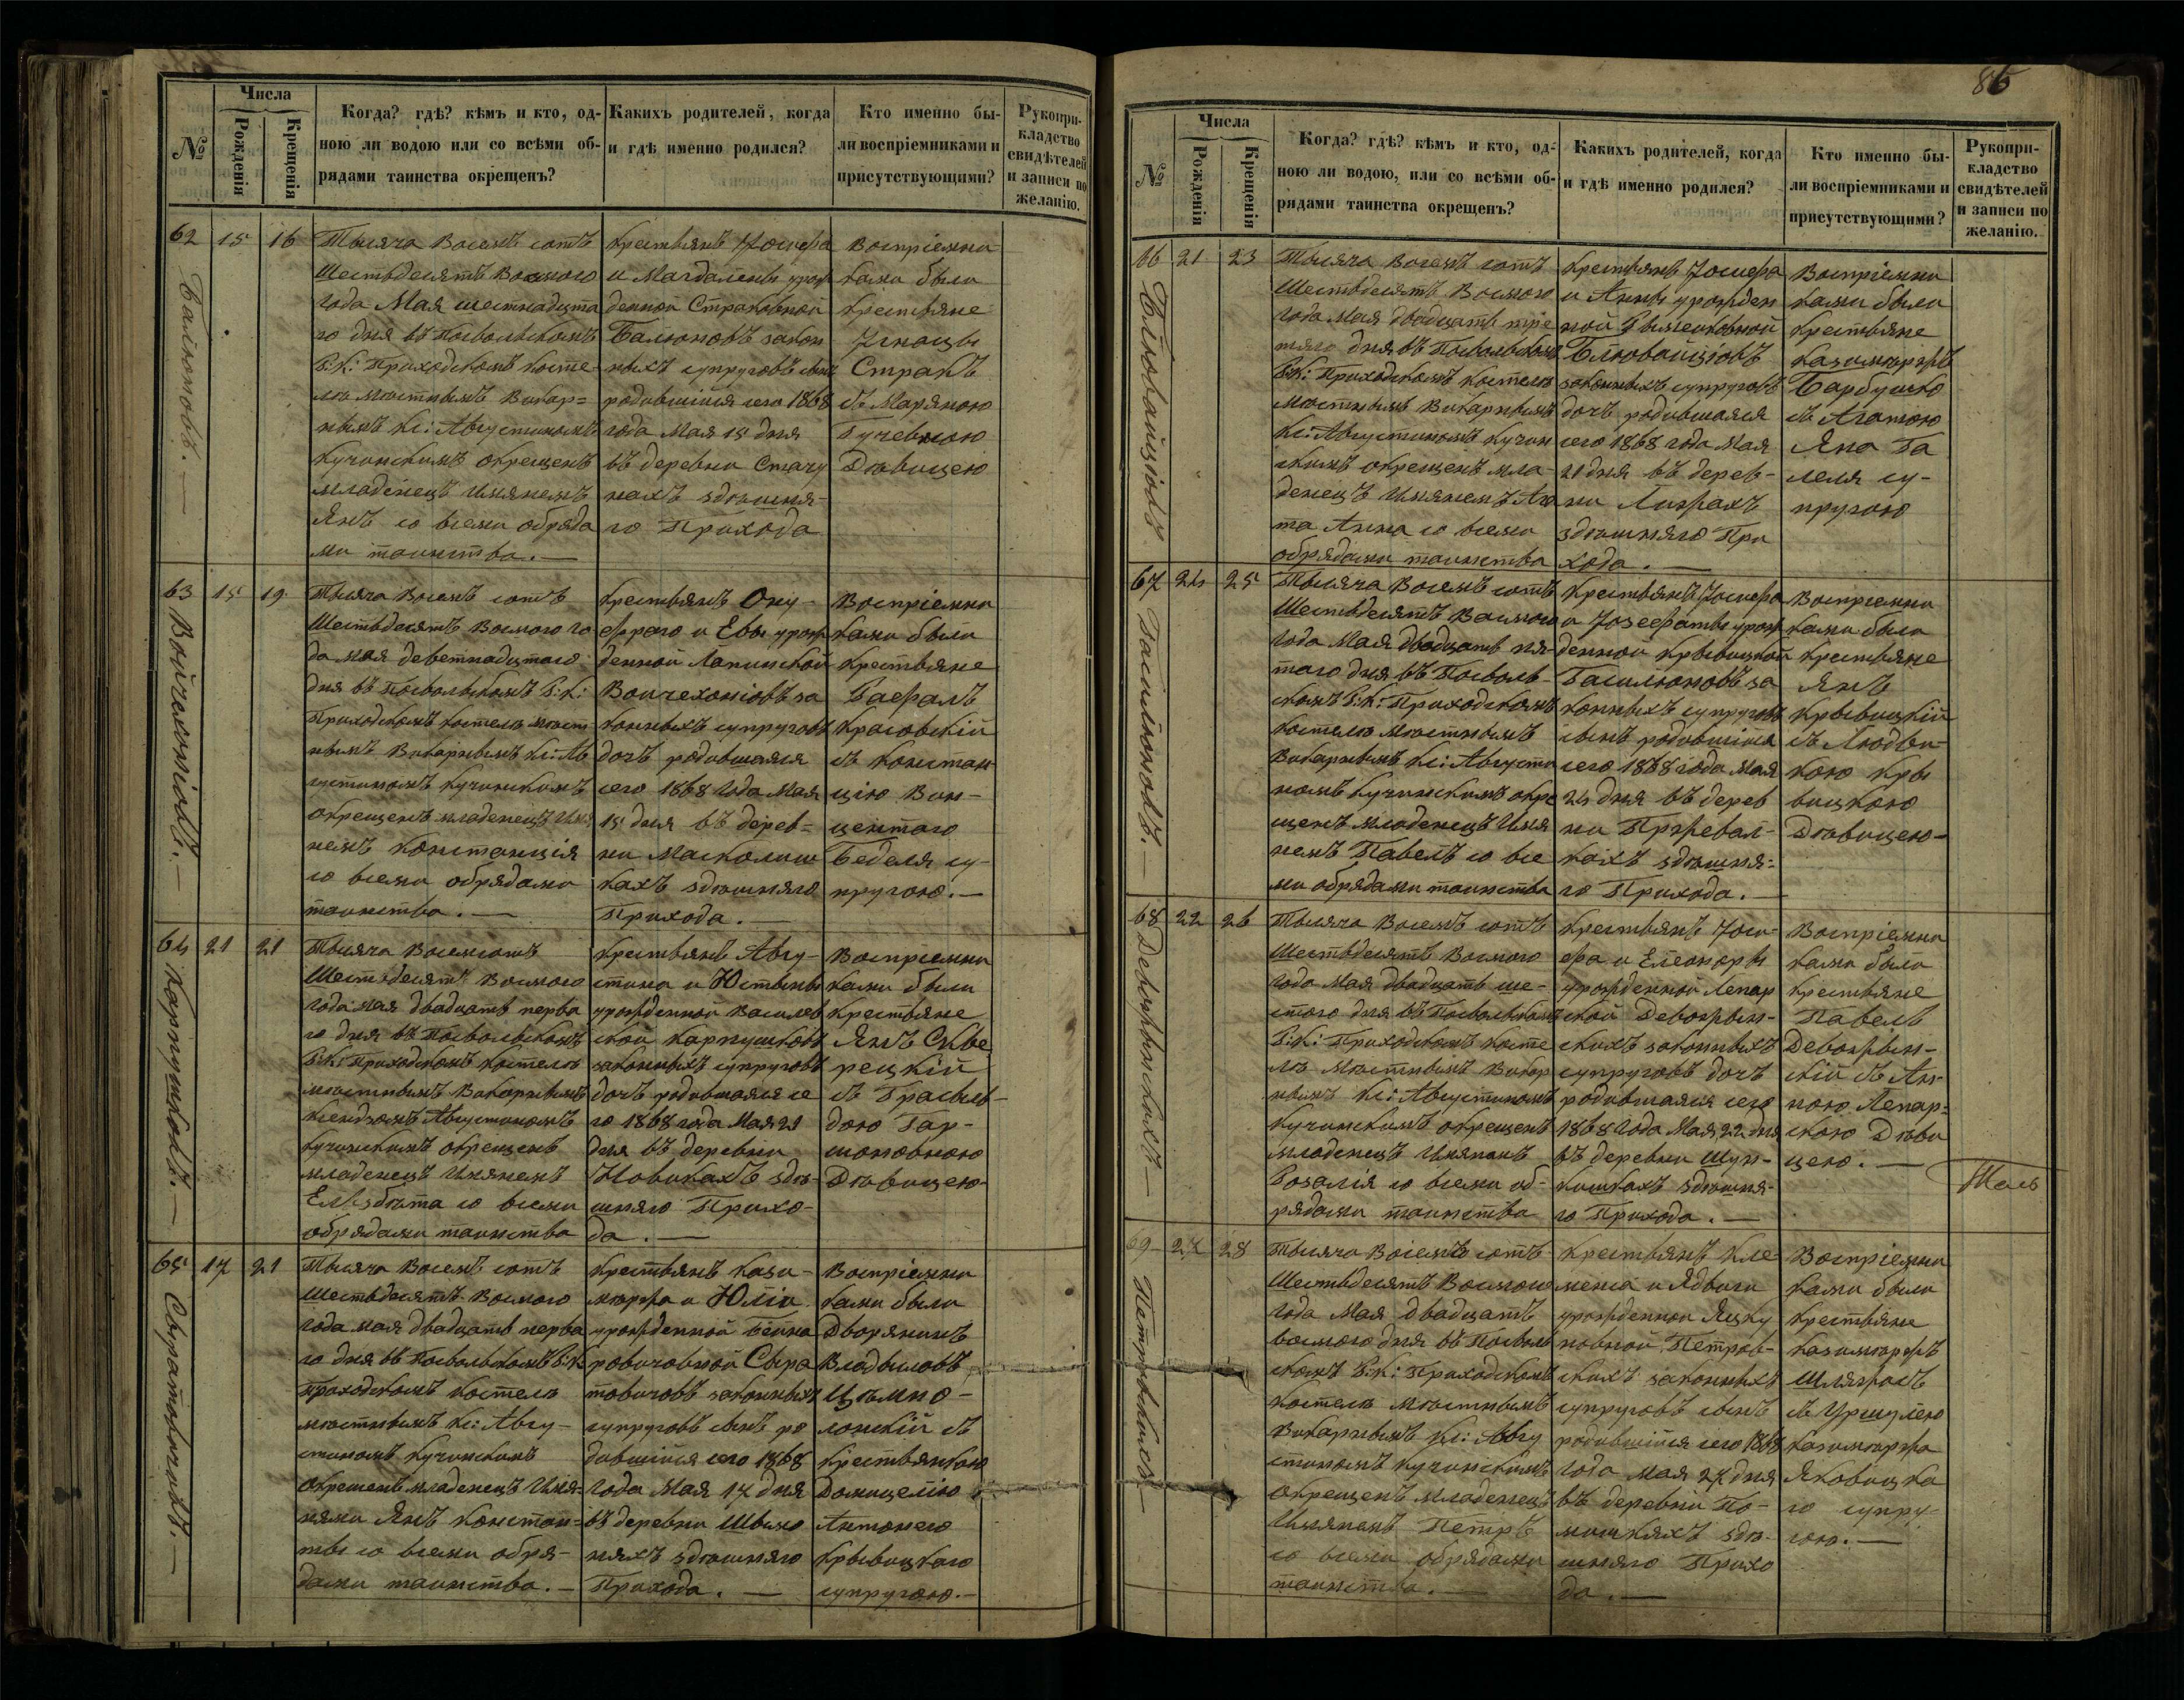 №
Числа
Рожденія
Крещенія
Когда? гдѣ? кѣмъ и кто, од-
ною ли водою или со всѣми об-
рядами таинства окрещенъ?
Какихъ родителей, когда
и гдѣ именно родился?
Кто именно бы-
ли воспріемниками и
присутствующими?
Рукопри-
кладство
свидѣтелей
и записи по
желанію.
62
15
16
Балюновъ. —
Тысяча Восемъ сотъ
Шестьдесятъ Восмого
года Мая шестнадцта
го дня въ Посвольскомъ
Р: К: Приходскомъ косте
лѣ мѣстнымъ Викар=
нымъ Кс: Августиномъ
Кучинскимъ окрещенъ
младенецъ имянемъ
Янъ со всеми обряда
ми таинства. —
крестьянъ Іосифа
и Магдалены урож
денной Страковной
Балюновъ закон
ныхъ супруговъ сынъ
родившійся сего 1868
года Мая 15 дня
въ деревни Стагу
нахъ здѣшня-
го Прихода
Воспріемни
ками были
крестьяне
Игнацы
Стракъ
съ Маряною
Гучевною
Дѣвицею
63
15
19
Войчехоніовъ. —
Тысяча Восемъ сотъ
Шестьдесятъ Восмого го
да мая деветнадцтаго
дня въ Посвольскомъ Р: К:
Приходскомъ костелѣ мѣст
нымъ Викарнымъ Кс: Ав
густиномъ Кучинскимъ
окрещенъ младенецъ имя
немъ Констанція
со всеми обрядами
таинства. —
крестьянъ Ону-
фраго и Евы урож
денной Лапинской
Войчехоніовъ за
конныхъ супруговъ
дочъ родившаяся
сего 1868 года Мая
15 дня въ дерев=
ни Масколиш
кахъ здѣшняго
Прихода. —
Воспріемни
ками были
крестьяне
Рафалъ
Красовскій
съ Констан
цію Вин-
центаго
Беделя су-
пругою. —
64
21
21
Карпушковъ. —
Тысяча Восемсотъ
Шестьдесятъ Восмого
года мая двадцать перва
го дня въ Посвольскомъ
Р: К: Приходскомъ костелѣ
мѣстнымъ Викарнымъ
Ксендзомъ Августиномъ
Кучинскимъ окрещенъ
младенецъ имянемъ
Елѣзбѣта со всеми
обрядами таинства
крестьянъ Авгу-
стина и Юстыны
урожденной Василев
ской Карпушковъ
законныхъ супруговъ
дочъ родившаяся се
го 1868 года Мая 21
дня въ деревни
Новикахъ здѣ-
шняго Прихо-
да. —
Воспріемни
ками были
крестьяне
Янъ Скве
рецкій
съ Грасыль-
дою Гар-
шоновною
Дѣвицею
65
17
21
Свиратовичовъ. —
Тысяча Восемъ сотъ
Шестьдесятъ Восмого
года мая двадцать перва
го дня въ Посвольскомъ Р: К
Приходскомъ костелѣ
мѣстнымъ Кс: Авгу-
стиномъ Кучинскимъ
окрещенъ младенецъ имя=
нами Янъ Констан=
ты со всеми обря-
дами таинства. —
крестьянъ Кази-
мѣржа и Юліи
урожденной Бейна
ровичовной Свира
товичовъ законныхъ
супруговъ сынъ ро
дившійся сего 1868
года Мая 17 дня
въ деревни Швило
няхъ здѣшняго
Прихода. —
Воспріемни
ками были
Дворянинъ
Владыславъ
Цѣмно-
лонскій съ
крестьянкою
Домицелію
Антонего
Крывицкаго
супругою. —
86
№
Числа
Рожденія
Крещенія
Когда? гдѣ? кѣмъ и кто, од-
ною ли водою, или со всѣми об-
рядами таинства окрещенъ?
Какихъ родителей, когда
и гдѣ именно родился?
Кто именно бы-
ли воспріемниками и
присутствующими?
Рукопри-
кладство
свидѣтелей
и записи по
желанію.
66
21
23
Блювайціовъ
Тысяча Восемъ сотъ
Шестьдесятъ Восмого
года мая двадцать тре
тяго дня въ Посвольскомъ
Р: К: Приходскомъ костелѣ
мѣстнымъ Викарнымъ
Кс: Августиномъ Кучин
скимъ окрещенъ мла-
денецъ имянемъ Ага
та Анна со всеми
обрядами таинства
крестьянъ Іосифа
и Анны урожден
ной
Блювайціовъ
законныхъ супруговъ
дочъ родившаяся
сего 1868 года Мая
21 дня въ дерев-
ни Лижахъ
здѣшняго При
хода. —
Воспріемни
ками были
крестьяне
Казимѣржъ
Барбушко
съ Агатою
Яна Га
леля су-
пругою
67
24
25
Басилюновъ. —
Тысяча Восемъ сотъ
Шестьдесятъ Восмого
года Мая двадцать пя-
таго дня въ Посволь-
скомъ Р: К: Приходскомъ
костелѣ мѣстнымъ
Викарнымъ Кс: Августи
номъ Кучинскимъ окре
щенъ младенецъ имя
немъ Павелъ со все
ми обрядами таинства
крестьянъ Іосифа
и Іозефаты урож
денной Крывицкой
Басилюновъ за
конныхъ супруговъ
сынъ родившійся
сего 1868 года Мая
24 дня въ дерев
ни Пржевал-
кахъ здѣшня=
го Прихода. —
Воспріемни
ками были
крестьяне
Янъ
Крывицкій
съ Людви-
кою Кры
вицкою
Дѣвицею-
68
22
26
Девожынскихъ —
Тысяча Восемъ сотъ
Шестьдесятъ Восмого
года Мая двадцать ше-
стого дня въ Посвольскомъ
Р: К: Приходскомъ косте
лѣ мѣстнымъ Викар
нымъ Кс: Августиномъ
Кучинскимъ окрещенъ
младенецъ имянемъ
Розалія со всеми об-
рядами таинства
крестьянъ Іоси-
фа и Елеоноры
урожденной Лепар
ской Девожын-
скихъ законныхъ
супруговъ дочъ
родившаяся сего
1868 года Мая 22 дня
въ деревни Шун-
кишкахъ здѣшня-
го Прихода. —
Воспріемни
ками были
крестьяне
Павелъ
Девожын-
скій съ Ан-
ною Лепар=
скою Дѣви
цею. —
69
27
28
Петровскихъ —
Тысяча Восемъ сотъ
Шестьдесятъ Восмого
года Мая двадцать
восмого дня въ Посволь
скомъ Р: К: Приходскомъ
костелѣ мѣстнымъ
Викарнымъ Кс: Авгу
стиномъ Кучинскимъ
окрещенъ младенецъ
имянемъ Петръ
со всеми обрядами
таинства. —
крестьянъ Кле-
менса и Ядвиги
урожденной Яцку
новной Петров-
скихъ законныхъ
супруговъ сынъ
родившійся сего 1868
года мая 27 дня
въ деревни По-
мишкяхъ здѣ-
шняго Прихо
да. —
Воспріемни
ками были
крестьяне
Казимѣржъ
Шляжасъ
съ Уршулею
Казимѣржа
Яковицка
го супру-
гою. —